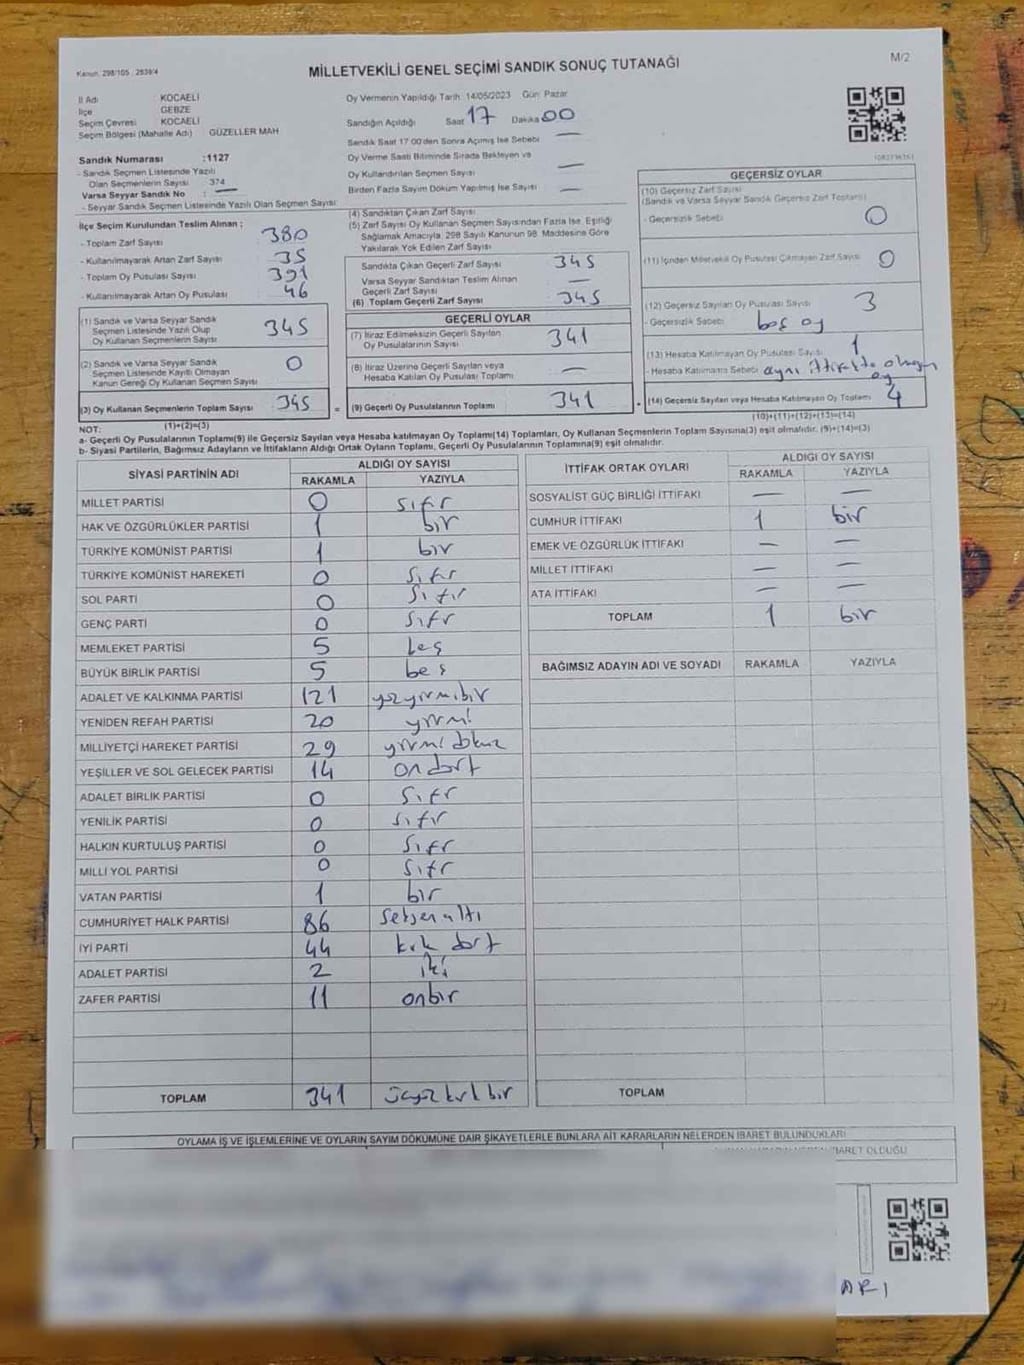 Kanun: 298/105 , 2839/4
MİLLETVEKİLİ GENEL SEÇİMİ SANDIK SONUÇ TUTANAĞI
M/2
İl Adı KOCAELİ
İlçe GEBZE
Seçim Çevresi KOCAELİ
Seçim Bölgesi (Mahalle Adı) GÜZELLER MAH
Sandık Numarası :1127
- Sandık Seçmen Listesinde Yazılı
Olan Seçmenlerin Sayısı 374
Varsa Seyyar Sandık No : —
- Seyyar Sandık Seçmen Listesinde Yazılı Olan Seçmen Sayısı
İlçe Seçim Kurulundan Teslim Alınan ;
- Toplam Zarf Sayısı 380
- Kullanılmayarak Artan Zarf Sayısı 35
- Toplam Oy Pusulası Sayısı 391
- Kullanılmayarak Artan Oy Pusulası 46
(1) Sandık ve Varsa Seyyar Sandık
Seçmen Listesinde Yazılı Olup
Oy Kullanan Seçmenlerin Sayısı 345
(2) Sandık ve Varsa Seyyar Sandık
Seçmen Listesinde Kayıtlı Olmayan
Kanun Gereği Oy Kullanan Seçmen Sayısı 0
(3) Oy Kullanan Seçmenlerin Toplam Sayısı 345
(1)+(2)=(3)
Oy Vermenin Yapıldığı Tarih: 14/05/2023 Gün: Pazar
Sandığın Açıldığı Saat 17 Dakika 00
Sandık Saat 17:00'den Sonra Açılmış İse Sebebi —
Oy Verme Saati Bitiminde Sırada Bekleyen ve
Oy Kullandırılan Seçmen Sayısı —
Birden Fazla Sayım Döküm Yapılmış İse Sayısı —
(4) Sandıktan Çıkan Zarf Sayısı
(5) Zarf Sayısı Oy Kullanan Seçmen Sayısından Fazla İse, Eşitliği
Sağlamak Amacıyla, 298 Sayılı Kanunun 98. Maddesine Göre
Yakılarak Yok Edilen Zarf Sayısı
Sandıkta Çıkan Geçerli Zarf Sayısı 345
Varsa Seyyar Sandıktan Teslim Alınan
Geçerli Zarf Sayısı —
(6) Toplam Geçerli Zarf Sayısı 345
GEÇERLİ OYLAR
(7) İtiraz Edilmeksizin Geçerli Sayılan
Oy Pusulalarının Sayısı 341
(8) İtiraz Üzerine Geçerli Sayılan veya
Hesaba Katılan Oy Pusulası Toplamı —
= (9) Geçerli Oy Pusulalarının Toplamı 341
GEÇERSİZ OYLAR
(10) Geçersiz Zarf Sayısı
(Sandık ve Varsa Seyyar Sandık Geçersiz Zarf Toplamı)
- Geçersizlik Sebebi: 0
(11) İçinden Milletvekili Oy Pusulası Çıkmayan Zarf Sayısı 0
(12) Geçersiz Sayılan Oy Pusulası Sayısı 3
- Geçersizlik Sebebi: boş oy
(13) Hesaba Katılmayan Oy Pusulası Sayısı 1
- Hesaba Katılmama Sebebi: aynı ittifakta olmayan oy
(14) Geçersiz Sayılan veya Hesaba Katılmayan Oy Toplamı 4
(10)+(11)+(12)+(13)=(14)
NOT:
a- Geçerli Oy Pusulalarının Toplamı(9) ile Geçersiz Sayılan veya Hesaba katılmayan Oy Toplamı(14) Toplamları, Oy Kullanan Seçmenlerin Toplam Sayısına(3) eşit olmalıdır. (9)+(14)=(3)
b- Siyasi Partilerin, Bağımsız Adayların ve İttifakların Aldığı Ortak Oyların Toplamı, Geçerli Oy Pusulalarının Toplamına(9) eşit olmalıdır.
SİYASİ PARTİNİN ADI
ALDIĞI OY SAYISI
RAKAMLA YAZIYLA
MİLLET PARTİSİ 0 sıfır
HAK VE ÖZGÜRLÜKLER PARTİSİ 1 bir
TÜRKİYE KOMÜNİST PARTİSİ 1 bir
TÜRKİYE KOMÜNİST HAREKETİ 0 sıfır
SOL PARTİ 0 sıfır
GENÇ PARTİ 0 sıfır
MEMLEKET PARTİSİ 5 beş
BÜYÜK BİRLİK PARTİSİ 5 beş
ADALET VE KALKINMA PARTİSİ 121 yüzyirmibir
YENİDEN REFAH PARTİSİ 20 yirmi
MİLLİYETÇİ HAREKET PARTİSİ 29 yirmi dokuz
YEŞİLLER VE SOL GELECEK PARTİSİ 14 on dört
ADALET BİRLİK PARTİSİ 0 sıfır
YENİLİK PARTİSİ 0 sıfır
HALKIN KURTULUŞ PARTİSİ 0 sıfır
MİLLİ YOL PARTİSİ 0 sıfır
VATAN PARTİSİ 1 bir
CUMHURİYET HALK PARTİSİ 86 seksen altı
İYİ PARTİ 44 kırk dört
ADALET PARTİSİ 2 iki
ZAFER PARTİSİ 11 onbir
TOPLAM 341 üçyüz kırk bir
İTTİFAK ORTAK OYLARI
ALDIĞI OY SAYISI
RAKAMLA YAZIYLA
SOSYALİST GÜÇ BİRLİĞİ İTTİFAKI — —
CUMHUR İTTİFAKI 1 bir
EMEK VE ÖZGÜRLÜK İTTİFAKI — —
MİLLET İTTİFAKI — —
ATA İTTİFAKI — —
TOPLAM 1 bir
BAĞIMSIZ ADAYIN ADI VE SOYADI RAKAMLA YAZIYLA
TOPLAM
OYLAMA İŞ VE İŞLEMLERİNE VE OYLARIN SAYIM DÖKÜMÜNE DAİR ŞİKAYETLERLE BUNLARA AİT KARARLARIN NELERDEN İBARET BULUNDUKLARI
İBARET OLDUĞU
ARI